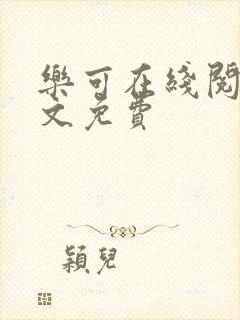 樂可在綫閱
文免費
穎兒